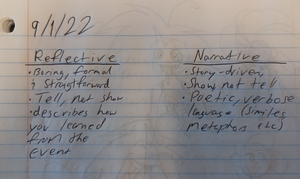 9/1/22
Reflective
• Boring, formal
& Straightforward
• Tell, not show
• describes how
you learned
from the
event
Narrative
• Story-driven,
• Show not tell
• Poetic, verbose
language (similes
metaphors etc)